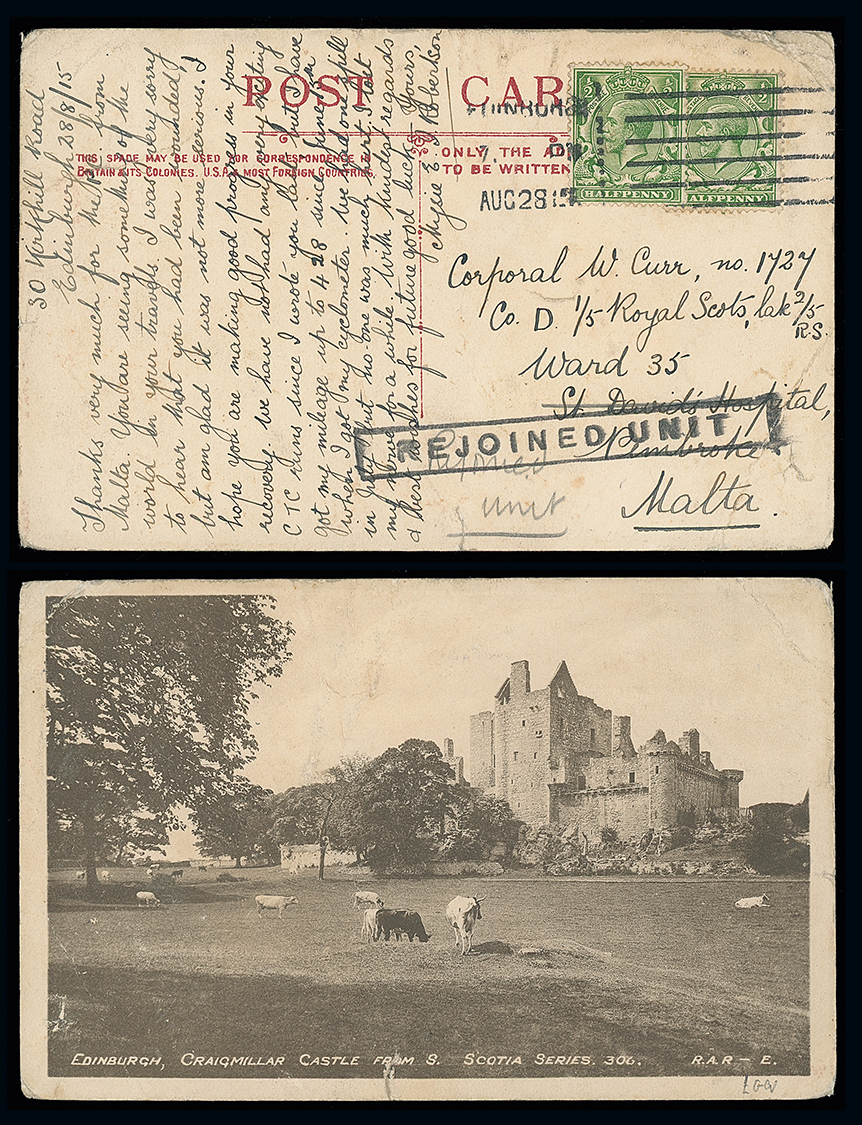 POST CARD
THIS SPACE MAY BE USED FOR CORRESPONDENCE IN
BRITAIN & ITS COLONIES, U.S.A. & MOST FOREIGN COUNTRIES.
ONLY THE AD
TO BE WRITTEN
30 Kirkhill Road
Edinburgh 28/8/15
Thanks very much for the P.P. from
Malta. You are seeing something of the
world in your travels. I was very sorry
to hear that you had been wounded,
but am glad it was not more serious. I
hope you are making good progress in your
recovery. We have not had any very exciting
CTC runs since I wrote you last but I have
got my mileage up to 428 since June
when I got my cyclometer. We had one spill
in July but no one was much hurt. I lost
my for a while. With kindest regards
& best wishes for future good luck. Yours,
E. J. Robertson
EDINBURGH
7. PM
AUG 28 15
HALFPENNY
HALFPENNY
Corporal W. Curr, no. 1727
Co. D. 1/5 Royal Scots, late 2/5
R.S.
Ward 35
St. David's Hospital,
Pembroke
Malta.
REJOINED UNIT
Rejoined
unit
EDINBURGH, CRAIGMILLAR CASTLE FROM S. SCOTIA SERIES. 306. R.A.R – E.